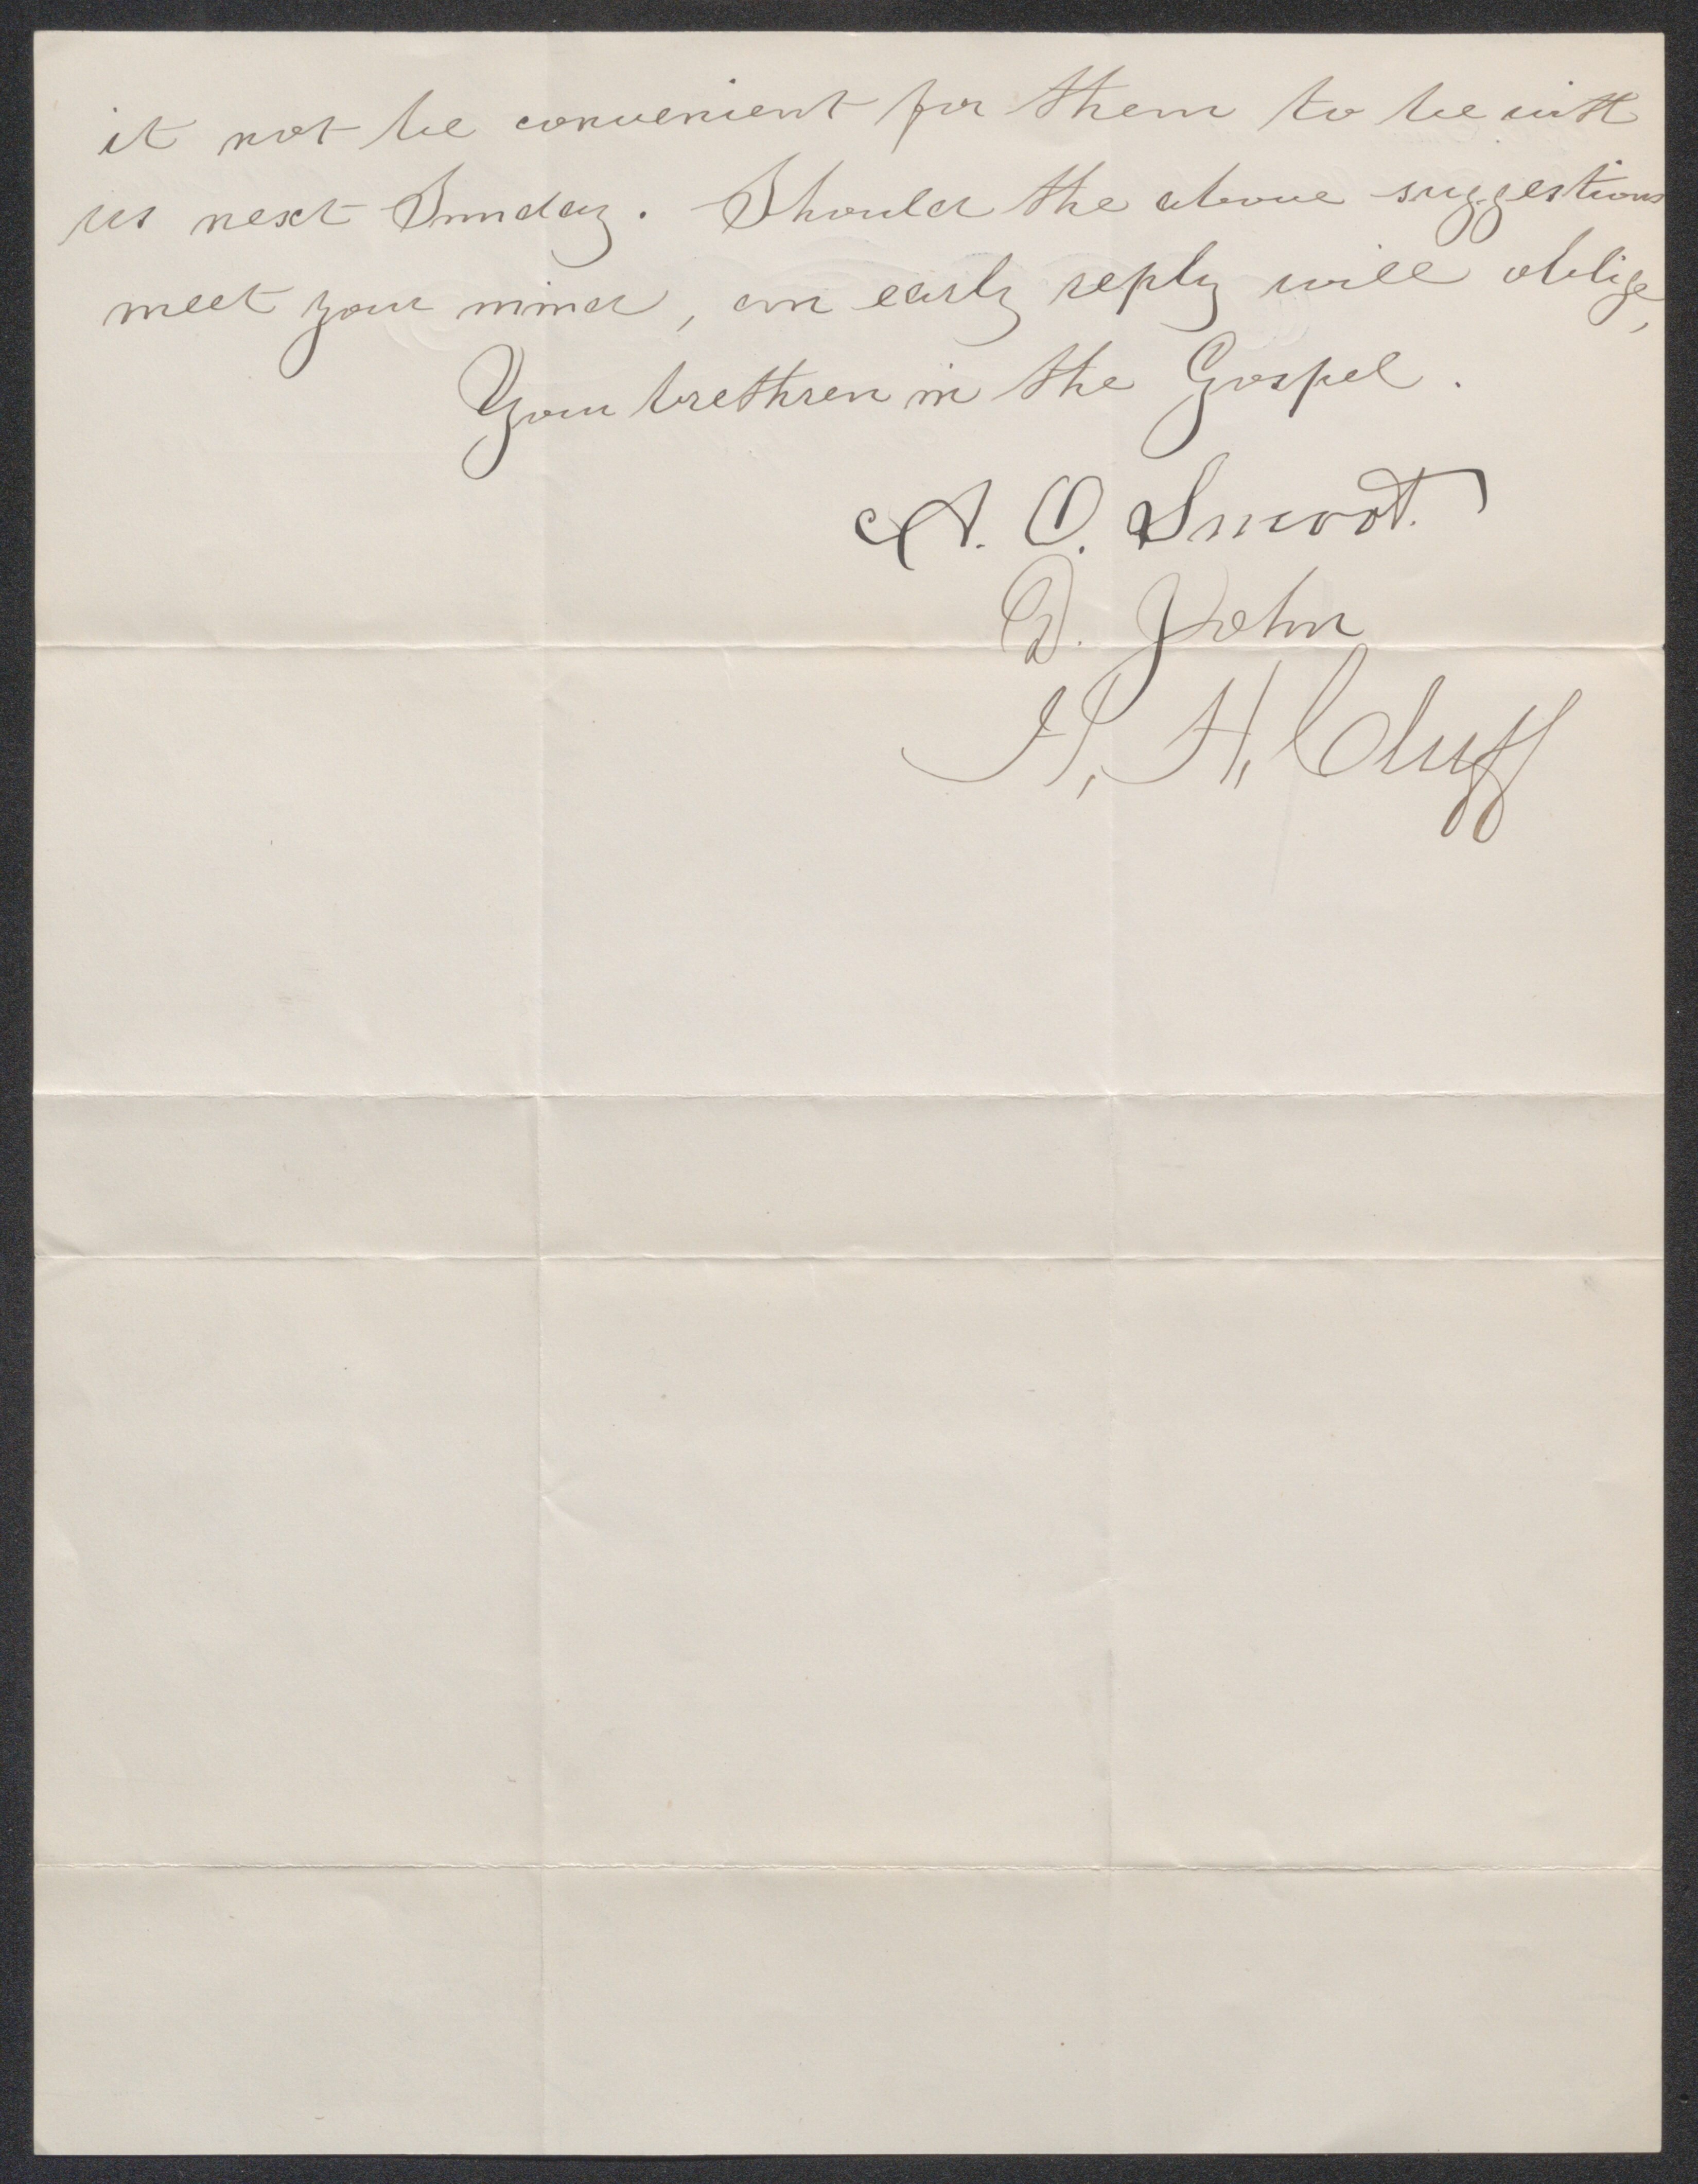 it not be convenient for them to be with
us next Sunday. Should the above suggestions
meet your mind, an early reply will oblige,
Your brethren in the Gospel.
A. O. Smoot.
D. John
H. H. Cluff